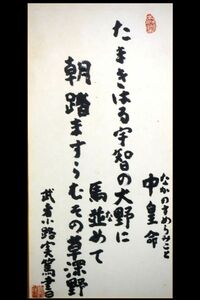 なかのすめらみこと
中皇命
たまきはる宇智の大野に
馬並めて
な
朝踏ますらむその草深野
武者小路実篤書